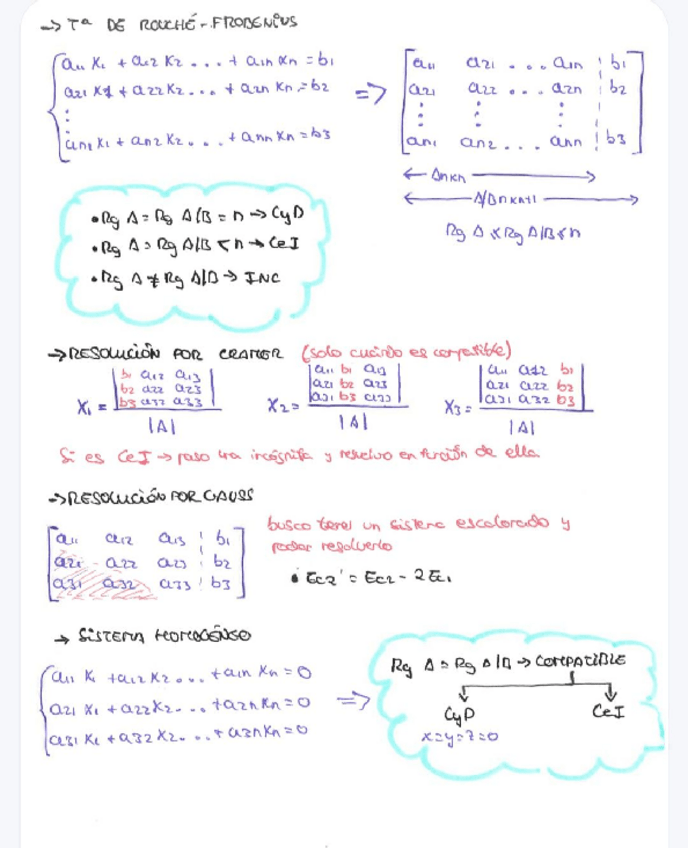 → Tª DE ROUCHÉ-FRODENIUS
a11 X1 + a12 X2 ... + a1n Xn = b1
a21 X1 + a22 X2 ... + a2n Xn = b2
⋮
an1 X1 + an2 X2 ... + ann Xn = b3
=>
a11 a21 ... a1n ¦ b1
a21 a22 ... a2n ¦ b2
⋮ ⋮ ⋮
an1 an2 ... ann ¦ b3
← Anxn →
← A/Bn x n+1 →
Rg A ≤ Rg A/B ≤ n
• Rg A = Rg A/B = n → CyD
• Rg A = Rg A/B < n → CeI
• Rg A ≠ Rg A/B → INC
→ RESOLUCIÓN POR CRAMER (solo cuando es compatible)
X1 = | b1 a12 a13 | X2 = | a11 b1 a13 | X3 = | a11 a12 b1 |
| b2 a22 a23 | | a21 b2 a23 | | a21 a22 b2 |
| b3 a32 a33 | | a31 b3 a33 | | a31 a32 b3 |
|A| |A| |A|
Si es CeI → paso 1ra incógnita y resuelvo en función de ella
→ RESOLUCIÓN POR GAUSS
a11 a12 a13 ¦ b1
a21 a22 a23 ¦ b2
a31 a32 a33 ¦ b3
busco tener un sistema escalonado y
poder resolverlo
• Ec2' = Ec2 - 2Ec1
→ SISTEMA HOMOGÉNEO
a11 X1 + a12 X2 ... + a1n Xn = 0
a21 X1 + a22 X2 ... + a2n Xn = 0
a31 X1 + a32 X2 ... + a3n Xn = 0
=>
Rg A = Rg A/B → COMPATIBLE
CyD CeI
x=y=z=0